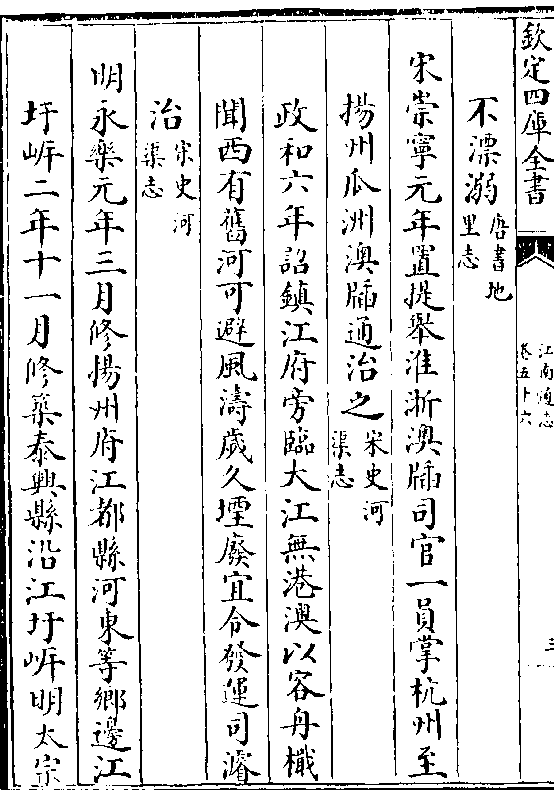 欽定四庫全書
江南通志
卷五十六
三
不漂溺唐書地里志
宋崇寧元年置提舉淮浙澳牐司官一員掌杭州至
揚州瓜洲澳牐通治之宋史河渠志
政和六年詔鎮江府旁臨大江無港澳以容舟檝
聞西有舊河可避風濤歲久堙廢宜令發運司濬
治宋史河渠志
明永樂元年三月修揚州府江都縣河東等鄉邊江
圩㟁二年十一月修築泰興縣沿江圩㟁明太宗